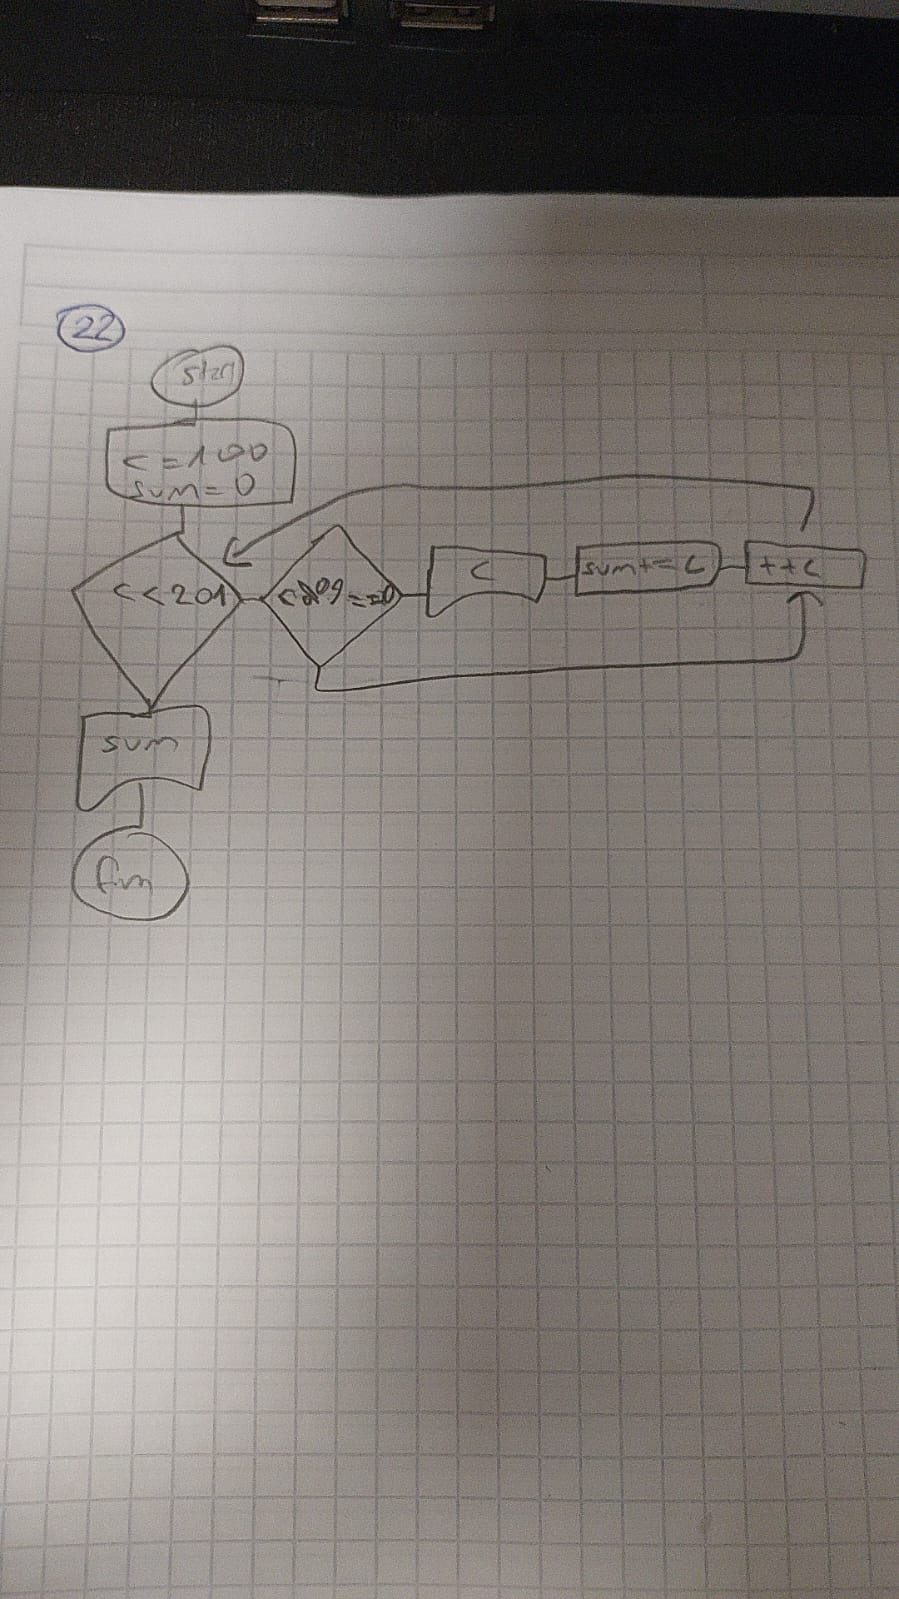 22
start
c=100
sum=0
c<201
c%9==0
c
sum+=c
++c
sum
fin